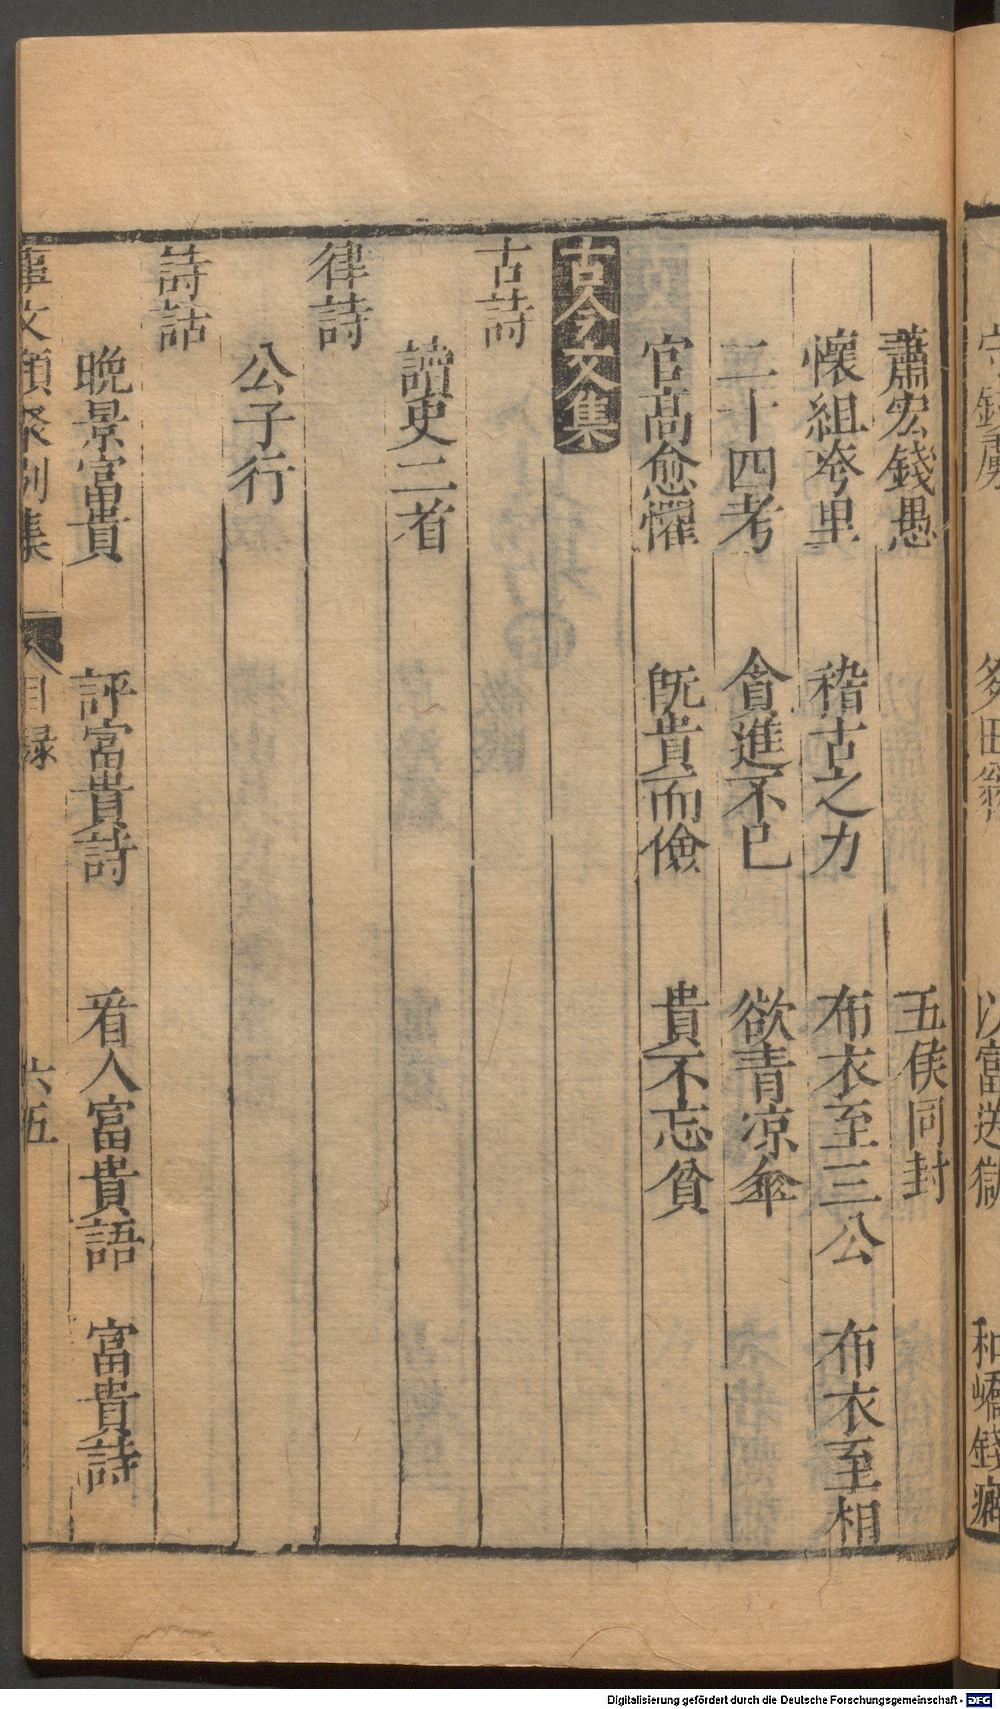 蕭宏錢愚　五侯同封
懷組夸里　稽古之力　布衣至三公　布衣至相
二十四考　貪進不已　欲青凉傘
官高愈懼　旣貴而儉　貴不忘貧
古今文集
古詩
讀史二首
律詩
公子行
詩話
晩景富貴　評富貴詩　看人富貴語　富貴詩
事文類聚別集　目録　六五
Digitalisierung gefördert durch die Deutsche Forschungsgemeinschaft - DFG